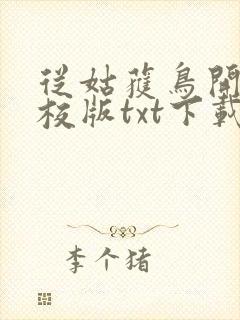 從姑獲鳥開
校版txt下載
李个猪